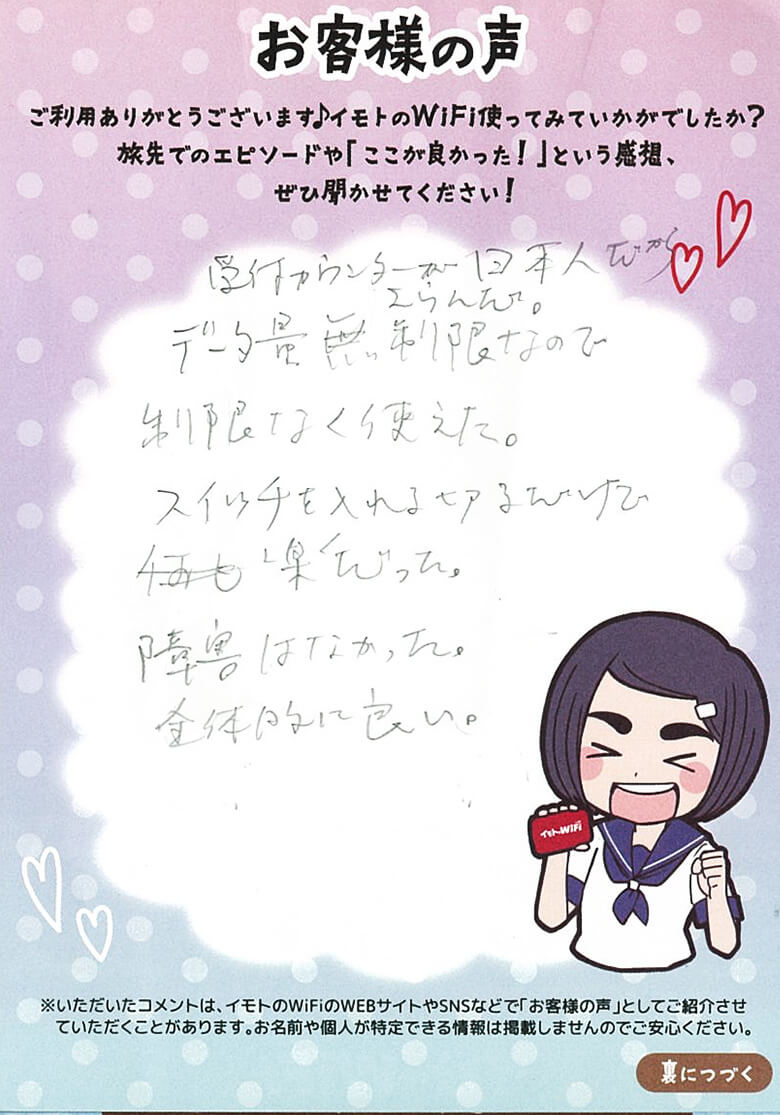 お客様の声
ご利用ありがとうございます♪イモトのWiFi使ってみていかがでしたか?
旅先でのエピソードや「ここが良かった!」という感想、
ぜひ聞かせてください!
受付カウンターが日本人だから
えらんだ。
データ量無制限なので
制限なく使えた。
スイッチを入れる切るだけで
楽だった。
障害はなかった。
全体的に良い。
イモトのWiFi
※いただいたコメントは、イモトのWiFiのWEBサイトやSNSなどで「お客様の声」としてご紹介させ
ていただくことがあります。お名前や個人が特定できる情報は掲載しませんのでご安心ください。
裏につづく